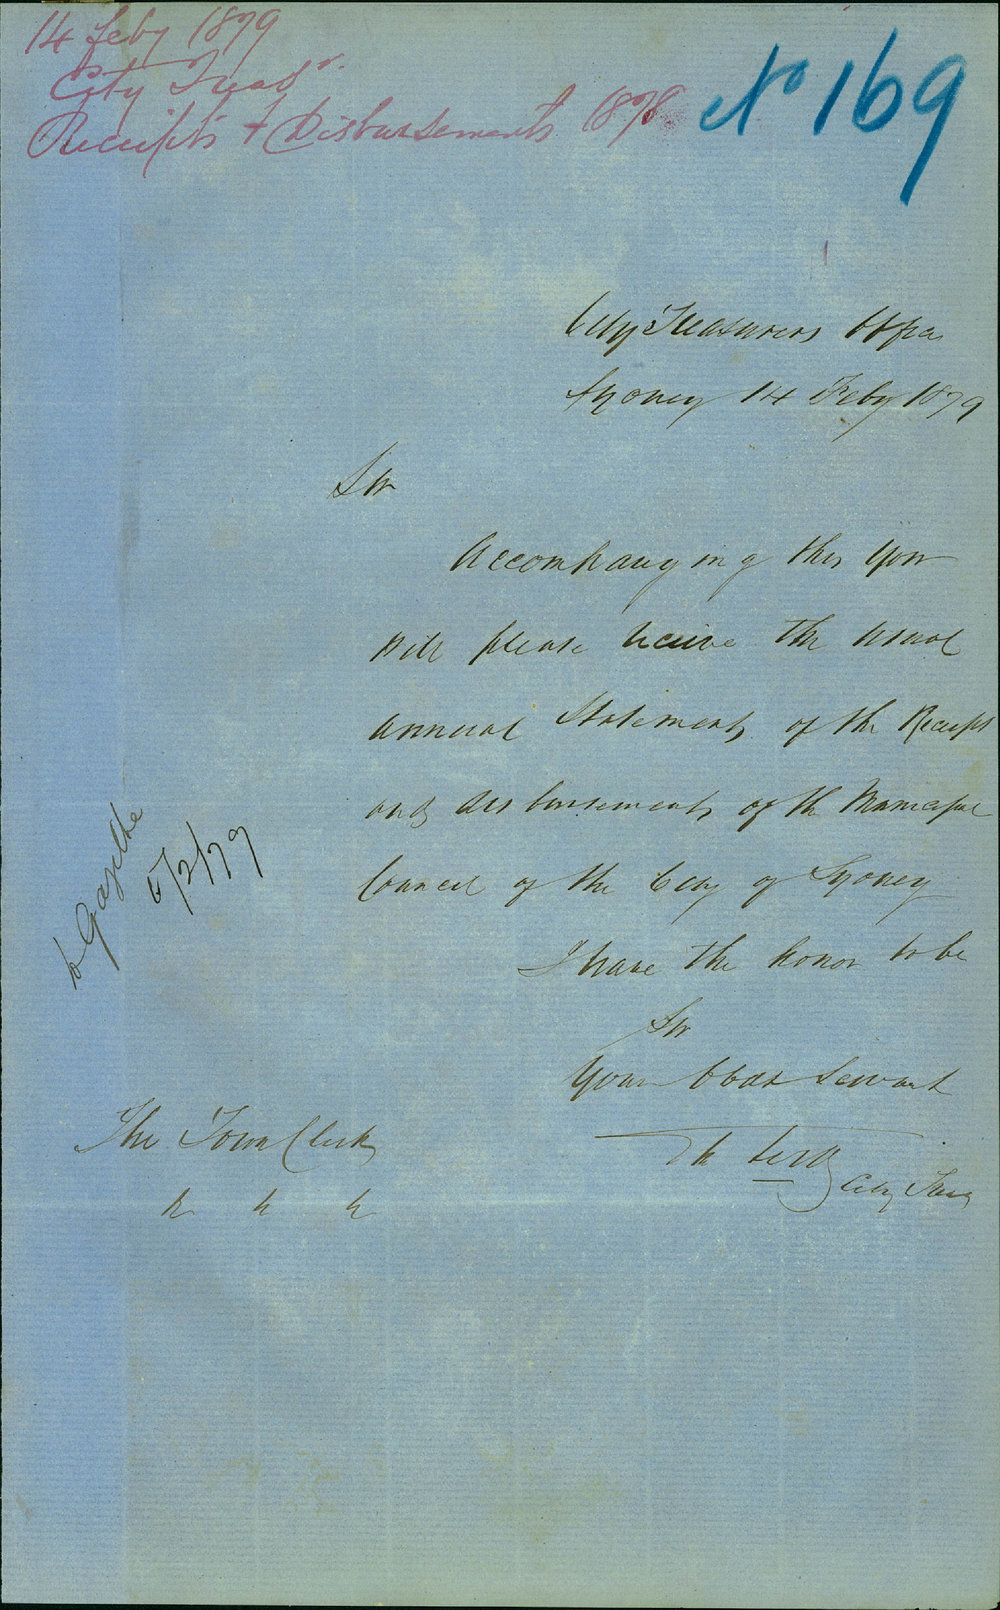 14 Feby 1879
City Treasr.
Receipts & Disbursements 1878
No 169
City Treasurers Office
Sydney 14 Feby 1879
Sir
Accompanying this you
will please receive the usual
annual Statements of the Receipts
and disbursements of the Municipal
Council of the City of Sydney
I have the honor to be
Sir
Your Obdt Servant
City Treas
The Town Clerk
to Gazette
/2/79